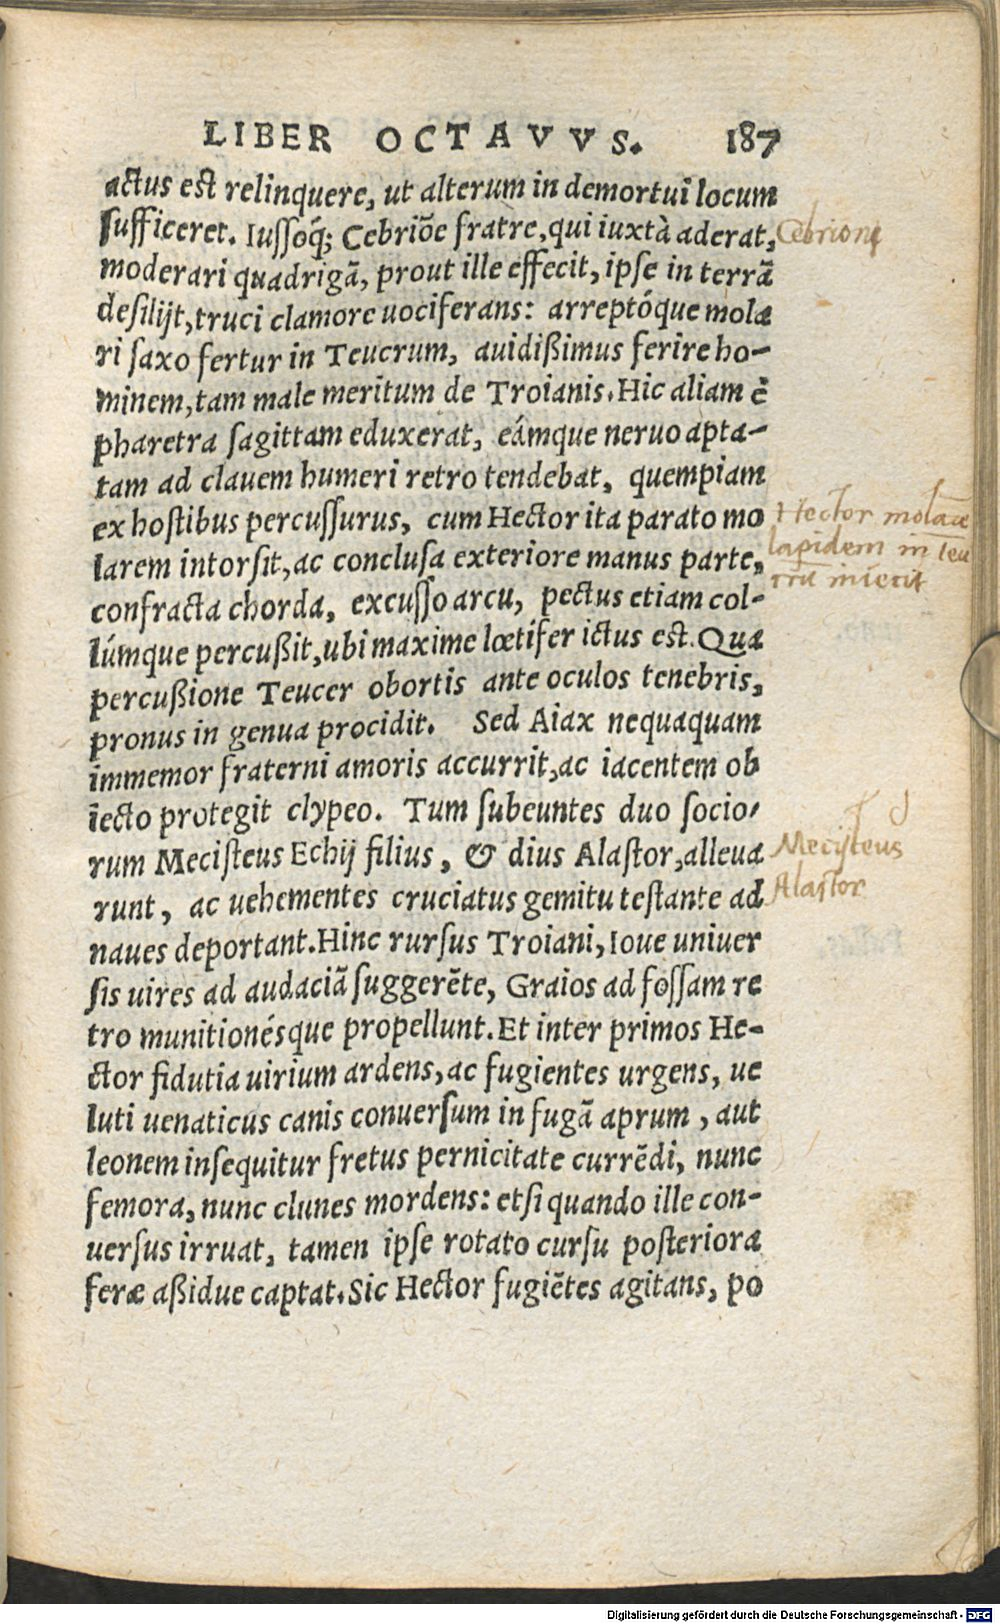 LIBER OCTAVVS. 187
actus est relinquere, ut alterum in demortui locum
sufficeret. Iussoq́; Cebriõe fratre, qui iuxtà aderat,
Cebrione
moderari quadrigã, prout ille effecit, ipse in terrã
desilijt, truci clamore uociferans: arreptóque molæ
ri saxo fertur in Teucrum, auidißimus ferire ho-
minem, tam male meritum de Troianis. Hic aliam è
pharetra sagittam eduxerat, eámque neruo apta-
tam ad clauem humeri retro tendebat, quempiam
ex hostibus percussurus, cum Hector ita parato mo
Hector molarē
larem intorsit, ac conclusa exteriore manus parte,
lapidem in teu
crū iniecit
confracta chorda, excusso arcu, pectus etiam col-
lúmque percußit, ubi maxime lœtifer ictus est. Qua
percußione Teucer obortis ante oculos tenebris,
pronus in genua procidit. Sed Aiax nequaquam
immemor fraterni amoris accurrit, ac iacentem ob
iecto protegit clypeo. Tum subeuntes duo socio-
rum Mecisteus Echij filius, & dius Alastor, alleua
Mecisteus
runt, ac uehementes cruciatus gemitu testante ad
Alastor
naues deportant. Hinc rursus Troiani, Ioue uniuer
sis uires ad audaciã suggerẽte, Graios ad fossam re
tro munitionésque propellunt. Et inter primos He-
ctor fidutia uirium ardens, ac fugientes urgens, ue
luti uenaticus canis conuersum in fugã aprum, aut
leonem insequitur fretus pernicitate currẽdi, nunc
femora, nunc clunes mordens: etsi quando ille con-
uersus irruat, tamen ipse rotato cursu posteriora
feræ aßidue captat. Sic Hector fugiẽtes agitans, po
Digitalisierung gefördert durch die Deutsche Forschungsgemeinschaft - DFG